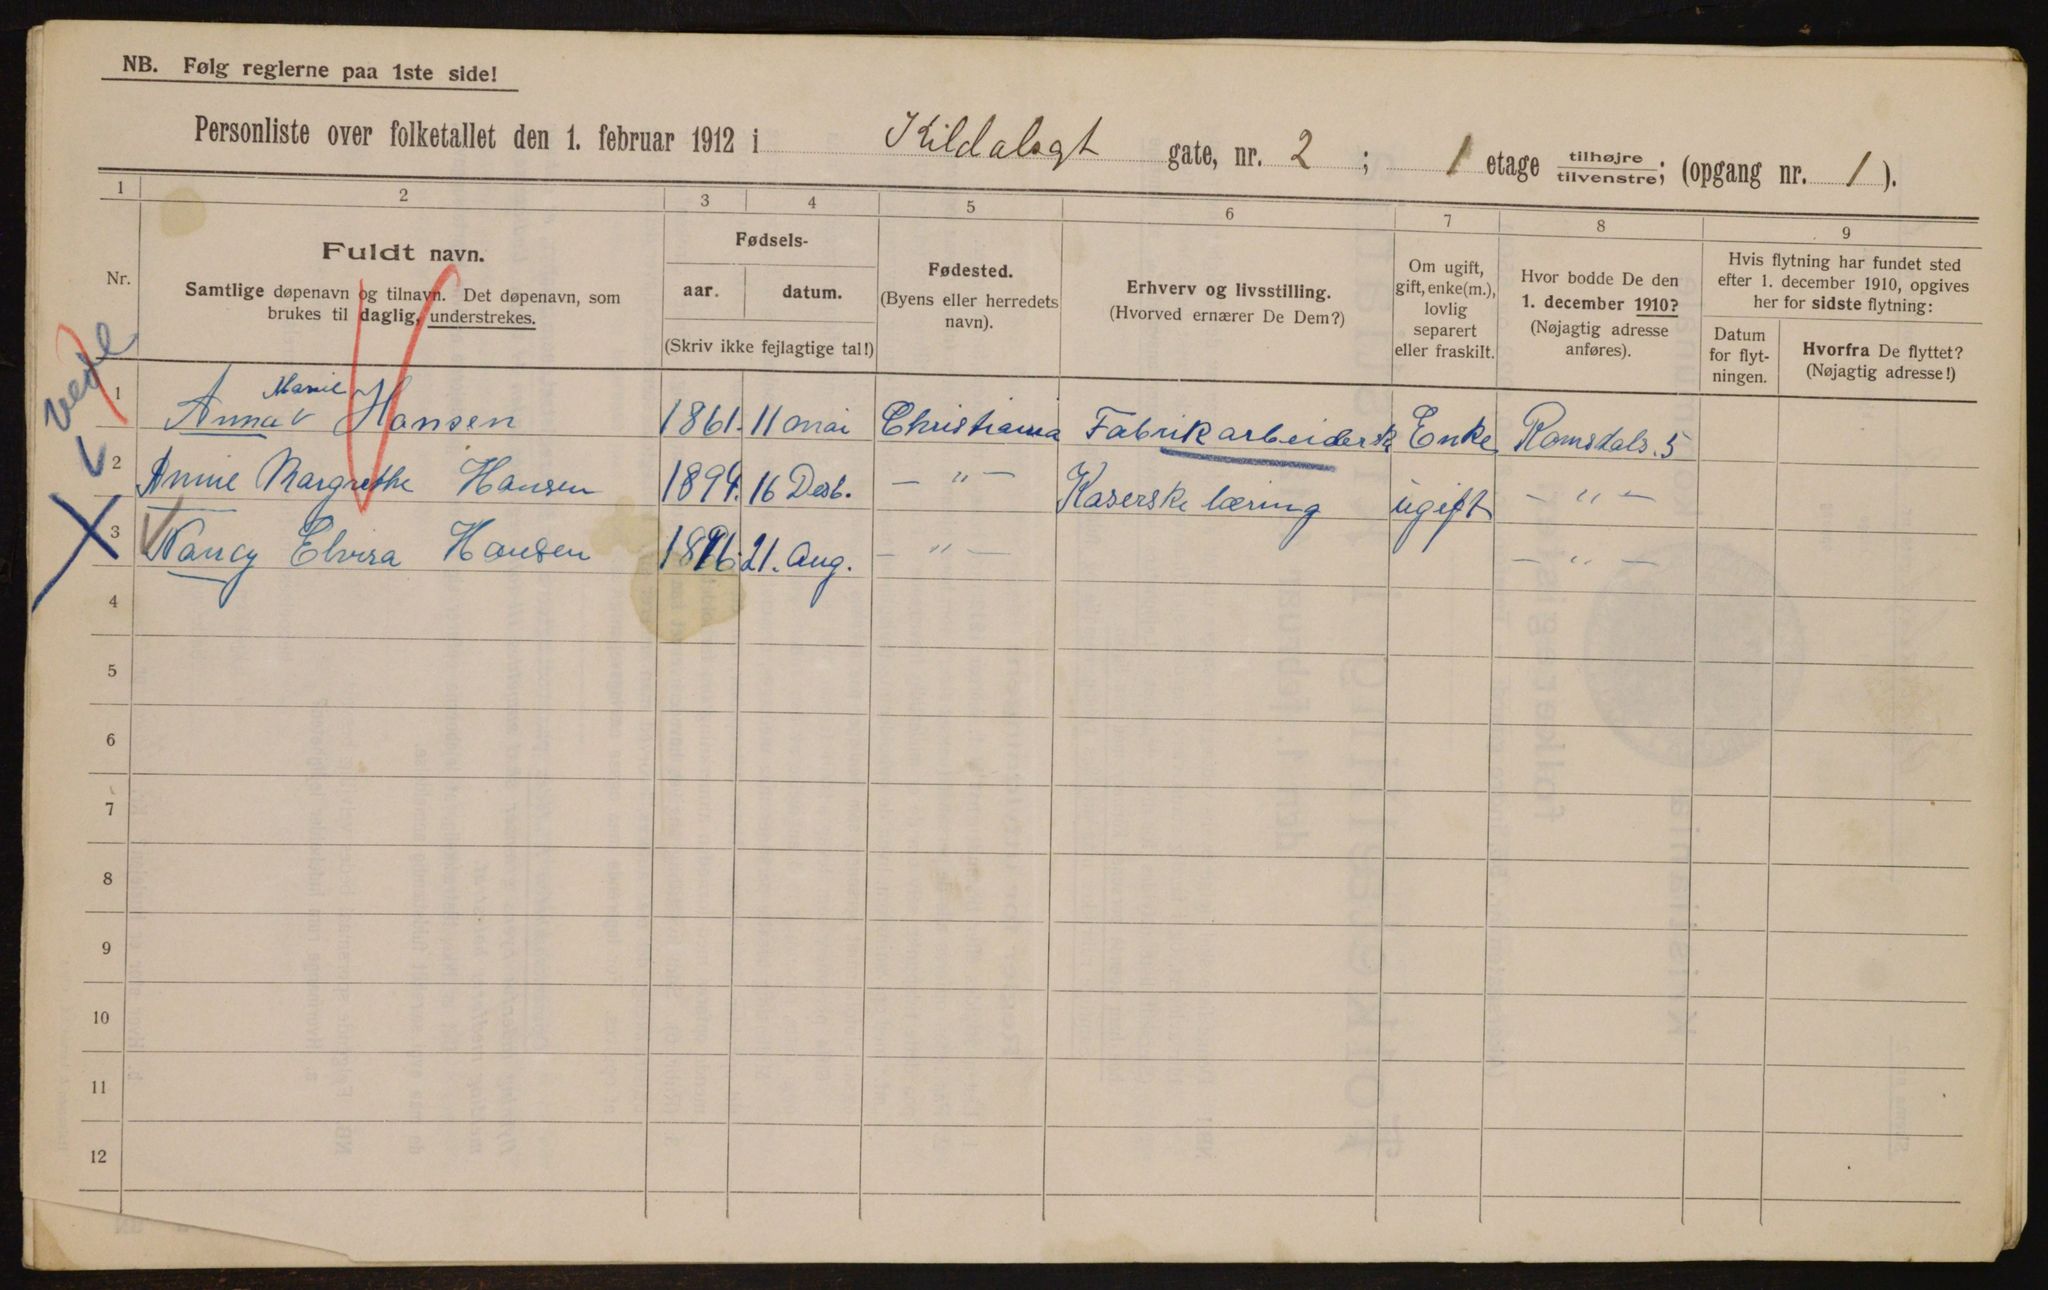 NB. Følg reglerne paa 1ste side!
Personliste over folketallet den 1. februar 1912 i Kildalsgt gate, nr. 2 ; 1 etage tilhøjre tilvenstre; (opgang nr. 1 ).
1 2 3 4 5 6 7 8 9
Nr.
Fuldt navn.
Samtlige døpenavn og tilnavn. Det døpenavn, som
brukes til daglig, understrekes.
Fødsels-
aar. datum.
(Skriv ikke fejlagtige tal!)
Fødested.
(Byens eller herredets
navn).
Erhverv og livsstilling.
(Hvorved ernærer De Dem?)
Om ugift,
gift, enke(m.),
lovlig
separert
eller fraskilt.
Hvor bodde De den
1. december 1910?
(Nøjagtig adresse
anføres).
Hvis flytning har fundet sted
efter 1. december 1910, opgives
her for sidste flytning:
Datum
for flyt-
ningen.
Hvorfra De flyttet?
(Nøjagtig adresse!)
Marie
1 Anna Hansen 1861. 11 mai Christiania Fabrikarbeidersk Enke Romsdals. 5
2 Annie Margrethe Hansen 1894. 16 Desb. — " — Kaserske læring ugift — " —
3 Nancy Elvira Hansen 1896. 21. Aug. — " — — " —
4
5
6
7
8
9
10
11
12